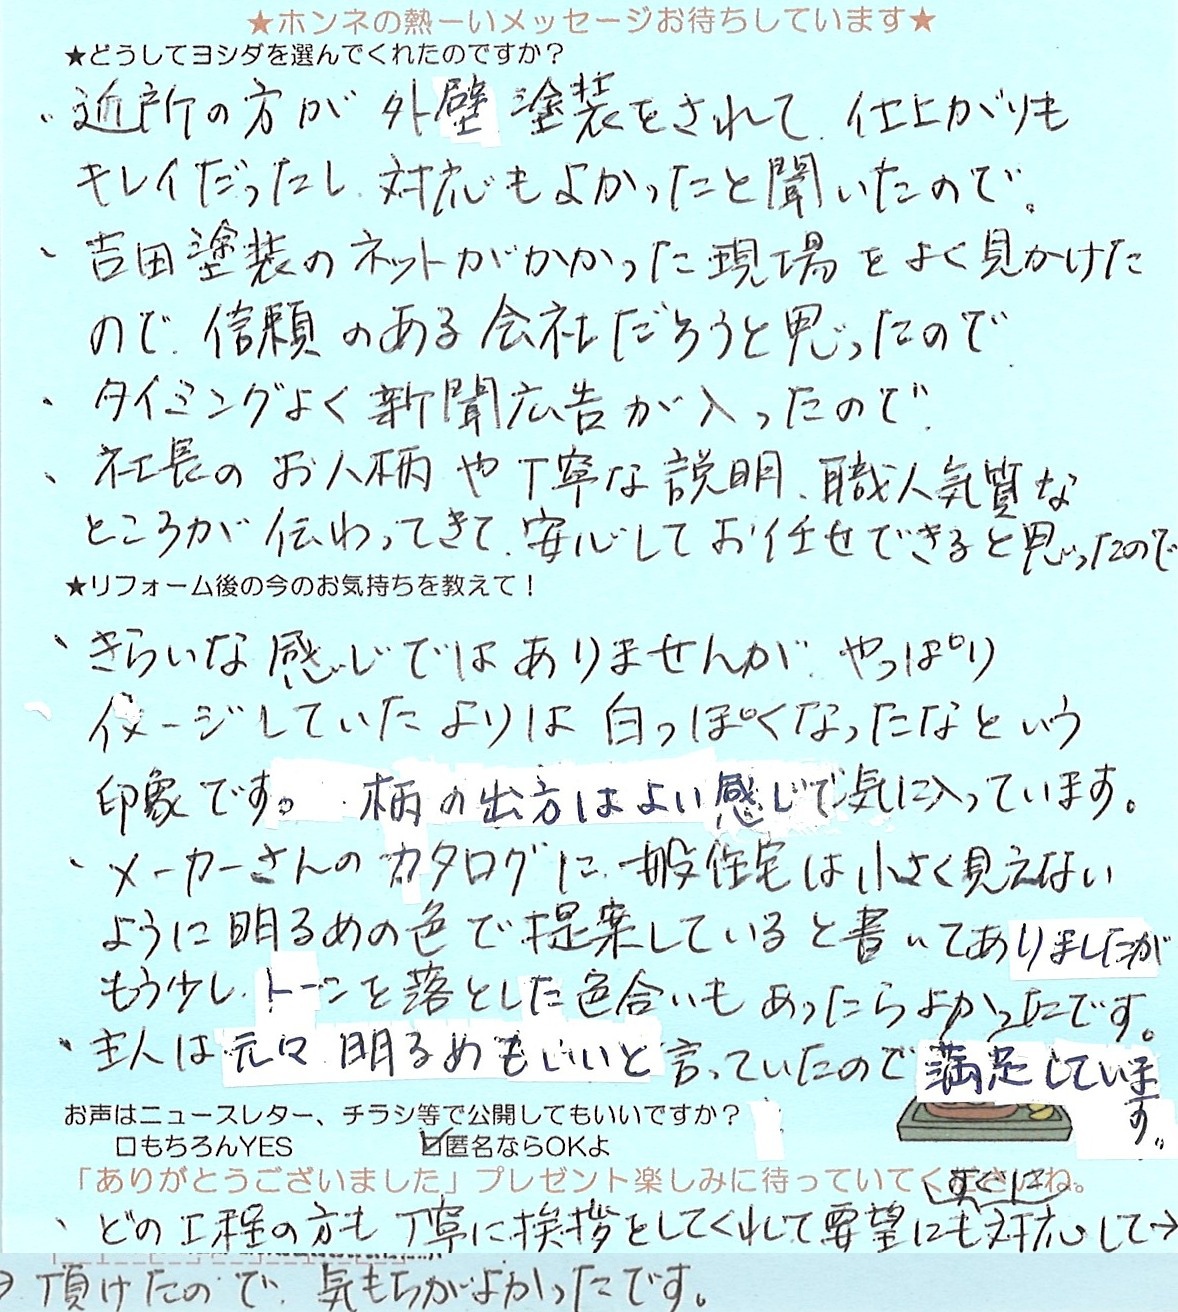 ★ホンネの熱ーいメッセージお待ちしています★
★どうしてヨシダを選んでくれたのですか？
・近所の方が外壁塗装をされて、仕上がりも
キレイだったし、対応もよかったと聞いたので。
・吉田塗装のネットがかかった現場をよく見かけた
ので、信頼のある会社だろうと思ったので
・タイミングよく新聞広告が入ったので。
・社長のお人柄や丁寧な説明、職人気質な
ところが伝わってきて、安心してお任せできると思ったので
★リフォーム後の今のお気持ちを教えて！
・きらいな感じではありませんが、やっぱり
イメージしていたよりは白っぽくなったなという
印象です。柄の出方はよい感じで気に入っています。
・メーカーさんのカタログに、一般住宅は小さく見えない
ように明るめの色で提案していると書いてありましたが
もう少し、トーンを落とした色合いもあったらよかったです。
・主人は元々明るめもいいと言っていたので満足していま
す。
お声はニュースレター、チラシ等で公開してもいいですか？
□もちろんYES ☑匿名ならOKよ
「ありがとうございました」プレゼント楽しみに待っていてくださいね。
すぐに
・どの工程の方も丁寧に挨拶をしてくれて要望にも対応して→
→頂けたので、気もちがよかったです。